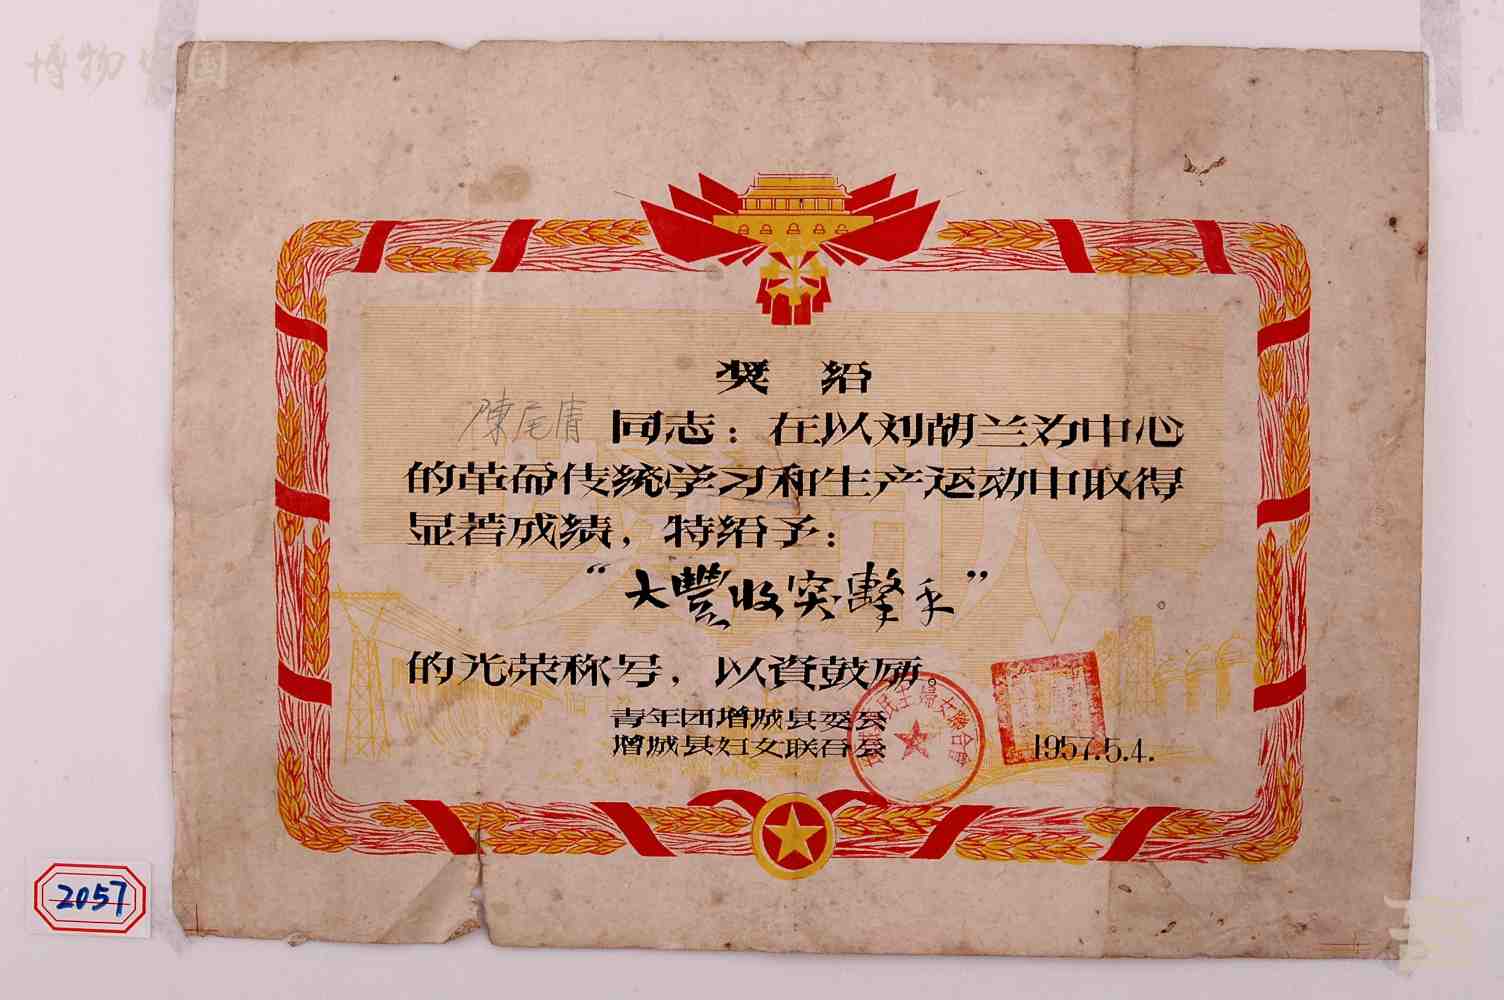 博物中国
奖 给
陳尾清 同志：在以刘胡兰为中心
的革命传统学习和生产运动中取得
显著成绩，特给予：
“大豐收突擊手”
的光荣称号，以資鼓励。
青年团增城县委会
增城县妇女联合会
民主婦女聯合會
1957.5.4.
2057